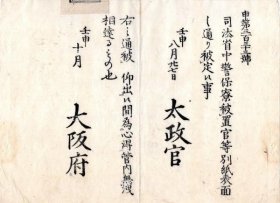 申第三百十三號
司法省中警保寮被置官等別紙表面
之通り被定候事
壬申
八月廿七日
太政官
右之通被 仰出候間為心得管内無洩
相達るもの也
壬申
十月
大阪府